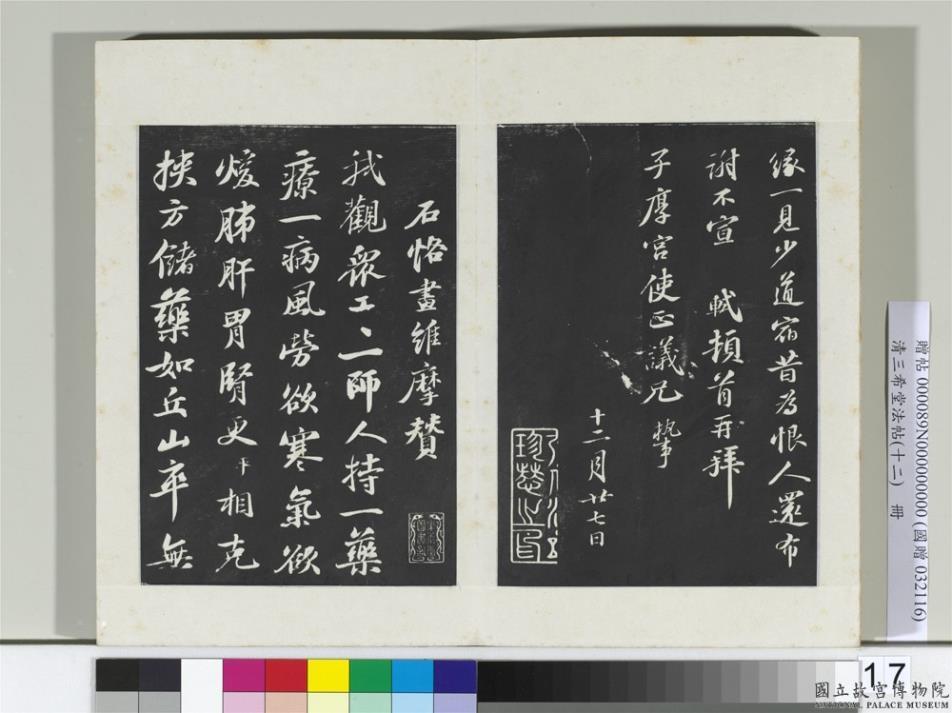 緣一見少道宿昔為恨人還布
謝不宣 軾頓首再拜
子厚宮使正議兄 執事
十二月廿七日
石恪畫維摩贊
我觀眾工工師人持一藥
療一病風勞欲寒氣欲
煖肺肝胃腎更 相克
挾方儲藥如丘山卒無
贈帖 0000089N000000000 (國贈 032116)
清三希堂法帖(十二) 冊
17
國立故宮博物院
NATIONAL PALACE MUSEUM